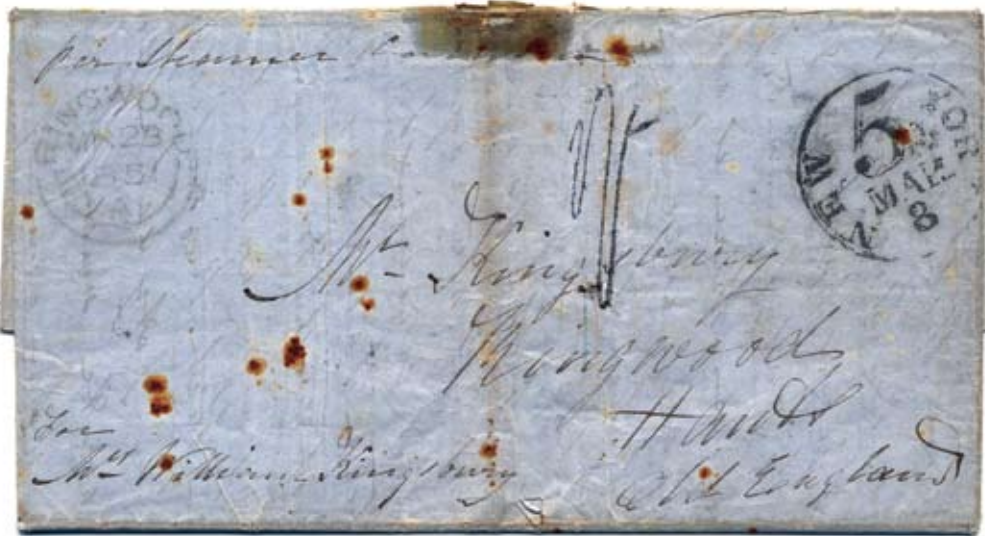 per Steamer
5
NEW YOR
MAR
8
Mr Kingsbury
Ringwood
Hants
Old England
For
Mrs William Kingsbury